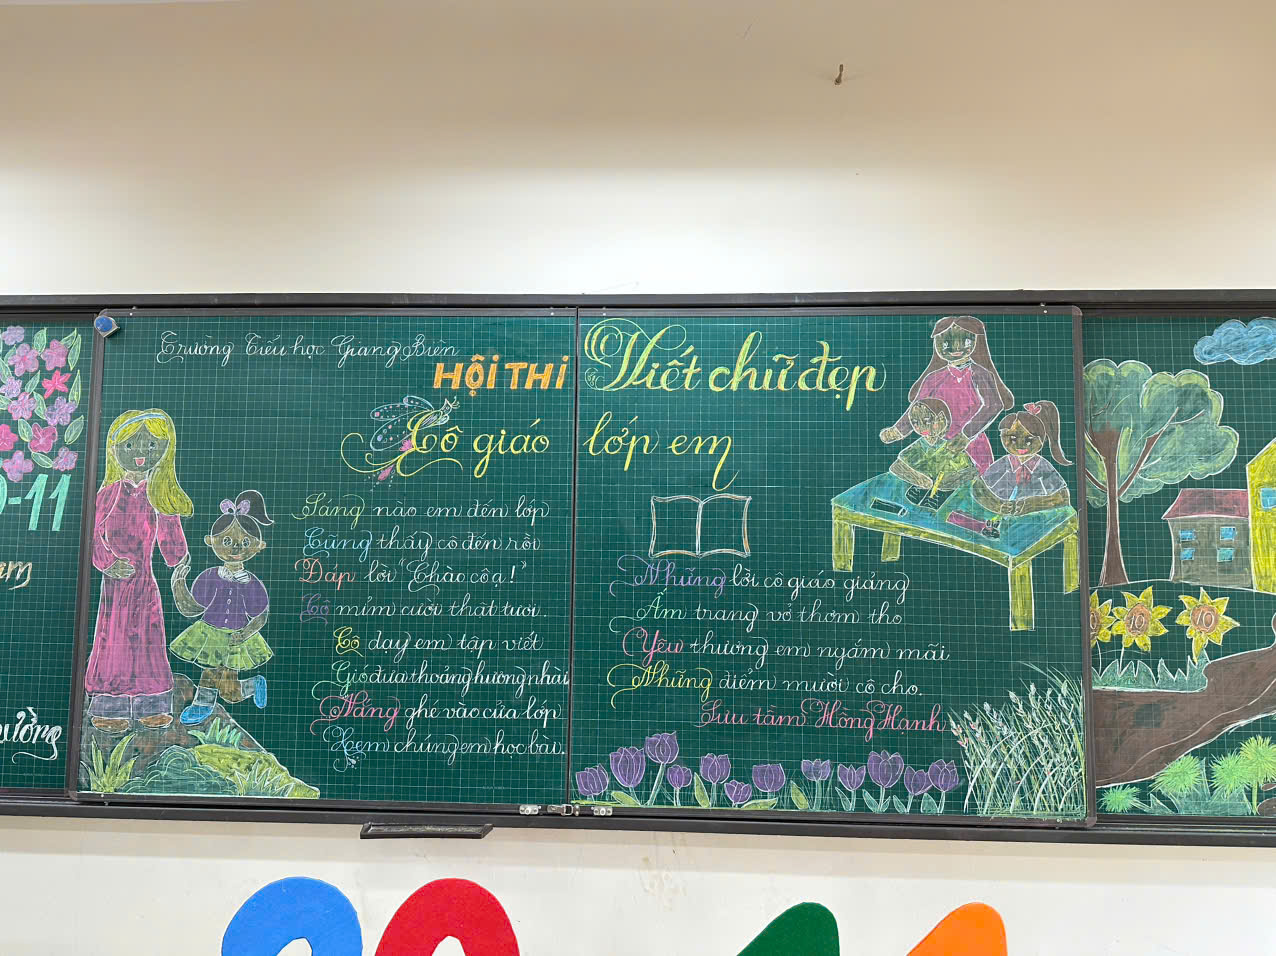 Trường Tiểu học Giang Biên
HỘI THI Viết chữ đẹp
Cô giáo lớp em
Sáng nào em đến lớp
Cũng thấy cô đến rồi
Đáp lời "Chào cô ạ!"
Cô mỉm cười thật tươi.
Cô dạy em tập viết
Gió đưa thoảng hương nhài
Nắng ghé vào cửa lớp
Xem chúng em học bài.
Những lời cô giáo giảng
Ấm trang vở thơm tho
Yêu thương em ngắm mãi
Những điểm mười cô cho.
Sưu tầm Hồng Hạnh
-11
10
10